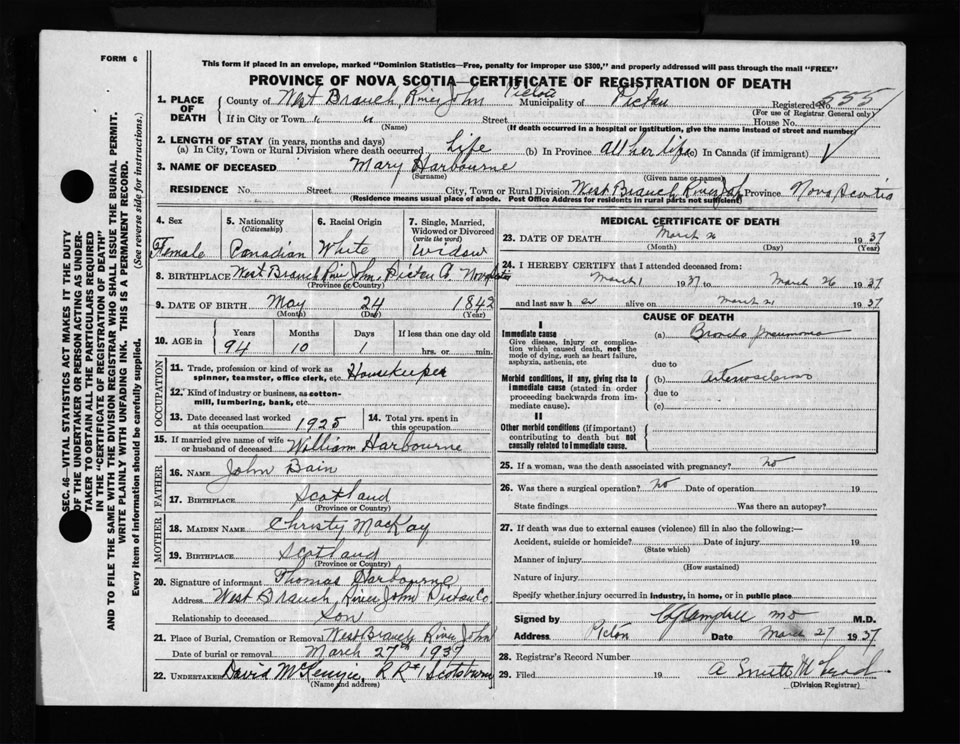 FORM 6
This form if placed in an envelope, marked "Dominion Statistics—Free, penalty for improper use $300," and properly addressed will pass through the mail "FREE"
PROVINCE OF NOVA SCOTIA—CERTIFICATE OF REGISTRATION OF DEATH
1. PLACE OF DEATH
County of West Branch River John Pictou Municipality of Pictou Registered No. 555
(For use of Registrar General only)
If in City or Town " " Street House No.
(Name) (If death occurred in a hospital or institution, give the name instead of street and number)
2. LENGTH OF STAY (in years, months and days)
(a) In City, Town or Rural Division where death occurred Life (b) In Province All her life (c) In Canada (if immigrant)
3. NAME OF DECEASED Mary Harbourne
(Surname) (Given name or names)
RESIDENCE No. Street City, Town or Rural Division West Branch River John Province Nova Scotia
(Residence means usual place of abode. Post Office Address for residents in rural parts not sufficient)
4. Sex 5. Nationality (Citizenship) 6. Racial Origin 7. Single, Married, Widowed or Divorced (write the word)
Female Canadian White Widow
8. BIRTHPLACE West Branch River John, Pictou Nova
(Province or Country)
9. DATE OF BIRTH May 24 1842
(Month) (Day) (Year)
10. AGE in Years Months Days If less than one day old
94 10 1 hrs. or min.
OCCUPATION
11. Trade, profession or kind of work as spinner, teamster, office clerk, etc. Housekeeper
12. Kind of industry or business, as cotton-mill, lumbering, bank, etc.
13. Date deceased last worked at this occupation 1925 14. Total yrs. spent in this occupation
15. If married give name of wife or husband of deceased William Harbourne
FATHER
16. NAME John Bain
17. BIRTHPLACE Scotland
(Province or Country)
MOTHER
18. MAIDEN NAME Christy MacKay
19. BIRTHPLACE Scotland
(Province or Country)
20. Signature of informant Thomas Harbourne
Address West Branch River John Pictou Co
Relationship to deceased Son
21. Place of Burial, Cremation or Removal West Branch River John
Date of burial or removal March 27th 1937
22. UNDERTAKER David McKenzie, RR#1 Scotsburn
(Name and address)
MEDICAL CERTIFICATE OF DEATH
23. DATE OF DEATH March 26 1937
(Month) (Day) (Year)
24. I HEREBY CERTIFY that I attended deceased from:
March 1 1937 to March 26 1937
and last saw her alive on March 21 1937
CAUSE OF DEATH
I
Immediate cause (a) Broncho pneumonia
Give disease, injury or complication which caused death, not the mode of dying, such as heart failure, asphyxia, asthenia, etc
due to
Morbid conditions, if any, giving rise to immediate cause (stated in order proceeding backwards from immediate cause). (b) Arteriosclerosis
due to
(c)
II
Other morbid conditions (if important) contributing to death but not causally related to immediate cause.
25. If a woman, was the death associated with pregnancy? no
26. Was there a surgical operation? No Date of operation 19
State findings Was there an autopsy?
27. If death was due to external causes (violence) fill in also the following:—
Accident, suicide or homicide? Date of injury 19
(State which)
Manner of injury
(How sustained)
Nature of injury
Specify whether injury occurred in industry, in home, or in public place
Signed by Campbell MD M.D.
Address Picton Date March 27 1937
28. Registrar's Record Number
29. Filed 19 A
(Division Registrar)
SEC. 46—VITAL STATISTICS ACT MAKES IT THE DUTY
OF THE UNDERTAKER OR PERSON ACTING AS UNDER-
TAKER TO OBTAIN ALL THE PARTICULARS REQUIRED
IN THE "CERTIFICATE OF REGISTRATION OF DEATH"
AND TO FILE THE SAME WITH THE DIVISION REGISTRAR WHO SHALL ISSUE THE BURIAL PERMIT.
WRITE PLAINLY WITH UNFADING INK. THIS IS A PERMANENT RECORD.
Every item of information should be carefully supplied. (See reverse side for instructions.)